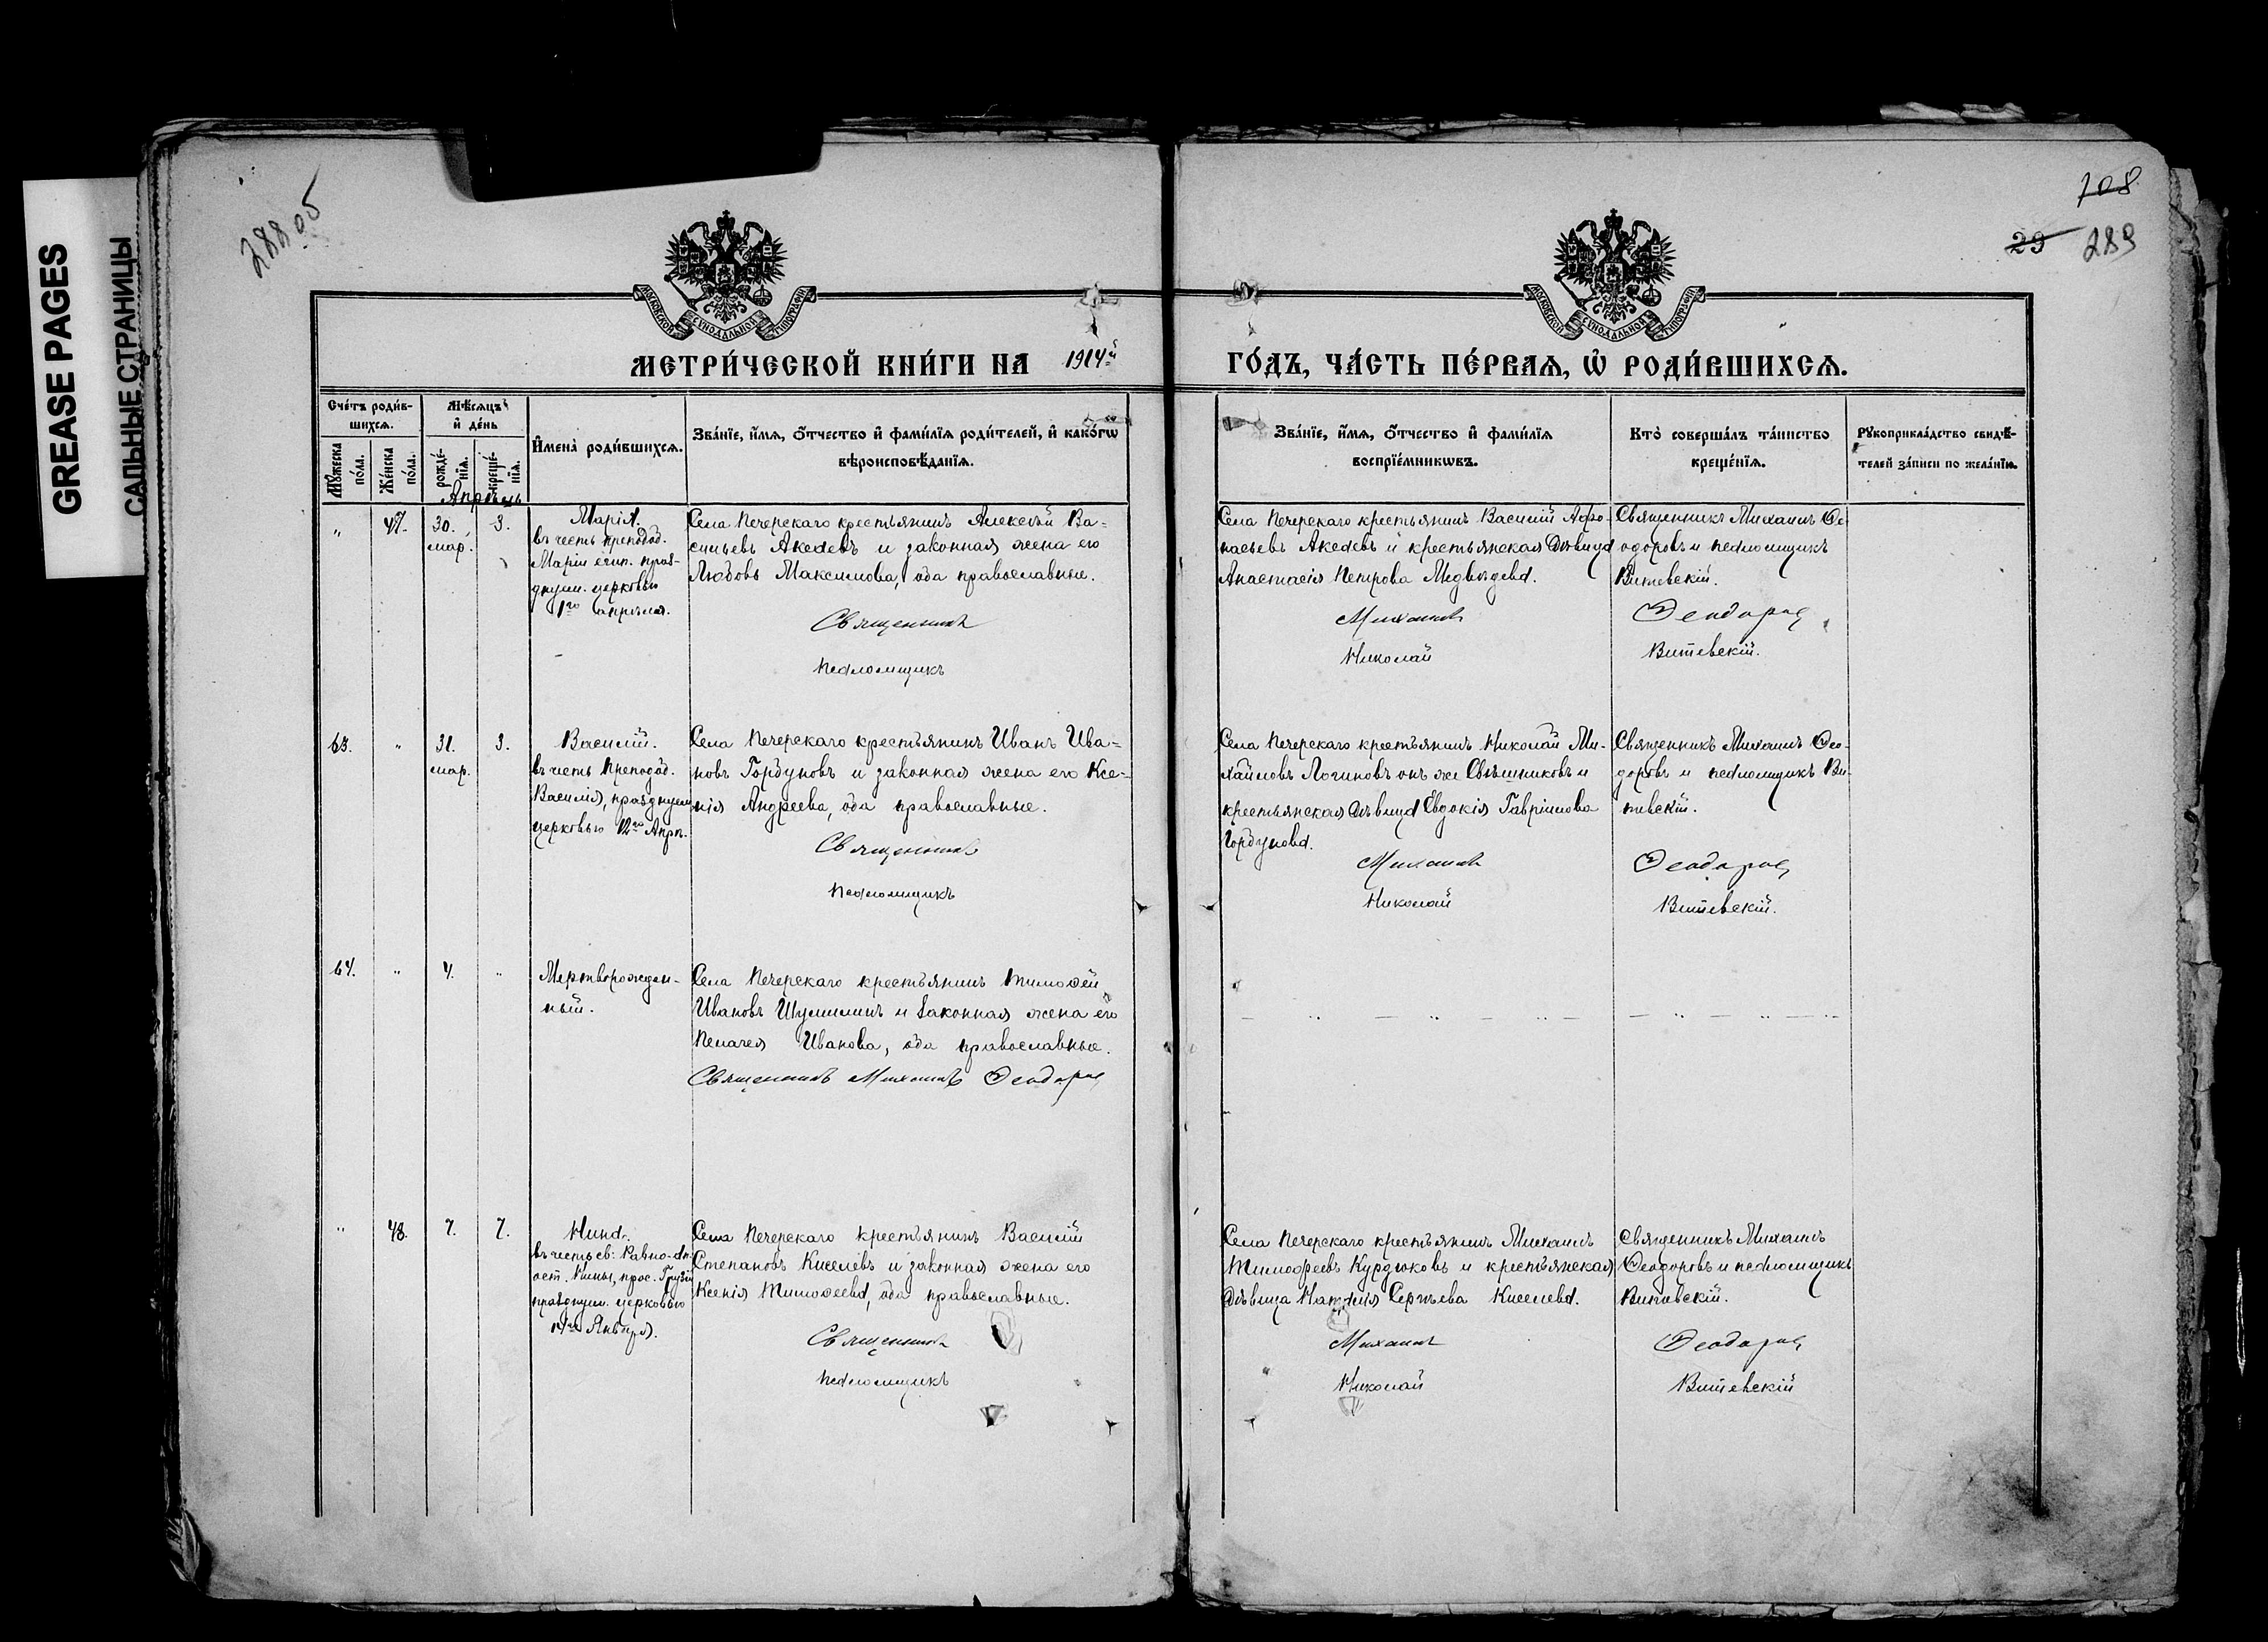 GREASE PAGES
САЛЬНЫЕ СТРАНИЦЫ
288 об
108
29 289
МОСКОВСКОЙ СУНОДАЛЬНОЙ ТИПОГРАФІИ
МОСКОВСКОЙ СУНОДАЛЬНОЙ ТИПОГРАФІИ
МЕТРИ́ЧЕСКОЙ КНИ́ГИ НА 1914й ГО́ДЪ, ЧА́СТЬ ПЕ́РВАѦ, Ѡ РОДИ́ВШИХСѦ.
Сче́тъ роди́в-
шихсѧ.
Мѣсѧцъ
и де́нь
Имена̀ роди́вшихсѧ.
Зва́нїе, и́мѧ, ѻ́тчество и фами́лїѧ роди́телей, и како́гѡ
вѣроисповѣ́данїѧ.
Зва́нїе, и́мѧ, ѻ́тчество и фами́лїѧ
воспрїе́мникѡвъ.
Кто̀ соверша́лъ та́инство
креще́нїѧ.
Рꙋкоприкла́дство свидѣ́-
телей за́писи по жела́нїю.
Мꙋ́жеска
по́ла.
Же́нска
по́ла.
рожде́-
нїѧ.
креще́-
нїѧ.
Апрѣль
„ 47. 30.
мар.
3.
Марія.
въ честь преподоб.
Маріи егип. праз-
днуем. церковью
1го апрѣля.
Села Печерскаго крестьянинъ Алексѣй Ва-
сильевъ Акедевъ и законная жена его
Любовь Максимова, оба православные.
Священникъ
Псаломщикъ
Села Печерскаго крестьянинъ Василій Афо-
насьевъ Акедевъ и крестьянская дѣвица
Анастасія Петрова Медвѣдева.
Михаилъ
Николай
Священникъ Михаилъ Ѳе-
одоровъ и псаломщикъ
Витевскій.
Ѳеодоровъ
Витевскій.
63. „ 31.
мар.
3.
Василій.
въ честь Преподоб.
Василія, празднуем
церковью 12го Апрѣ.
Села Печерскаго крестьянинъ Иванъ Ива-
новъ Горбуновъ и законная жена его Ксе-
нія Андреева, оба православные.
Священникъ
Псаломщикъ
Села Печерскаго крестьянинъ Николай Ми-
хайловъ Логиновъ онъ же Свѣшниковъ и
крестьянская дѣвица Евдокія Гавріилова
Горбунова.
Михаилъ
Николай
Священникъ Михаилъ Ѳео-
доровъ и псаломщикъ Ви-
тевскій.
Ѳеодоровъ
Витевскій.
64. „ 4. „
Мертворожден-
ный.
Села Печерскаго крестьянинъ Тимоѳей
Ивановъ Шумилинъ и законная жена его
Пелагея Иванова, оба православные.
Священникъ Михаилъ Ѳеодоровъ
„ 48. 7. 7.
Нина.
въ честь св. Равно-ап-
ост. Нины, прос. Грузіи
празднуем. церковью
14го Января.
Села Печерскаго крестьянинъ Василій
Степановъ Киселевъ и законная жена его
Ксенія Тимоѳеева, оба православные.
Священникъ
Псаломщикъ
Села Печерскаго крестьянинъ Михаилъ
Тимофеевъ Курдюковъ и крестьянская
дѣвица Сергѣева Киселева.
Михаилъ
Николай
Священникъ Михаилъ
Ѳеодоровъ и псаломщикъ
Витевскій.
Ѳеодоровъ
Витевскій